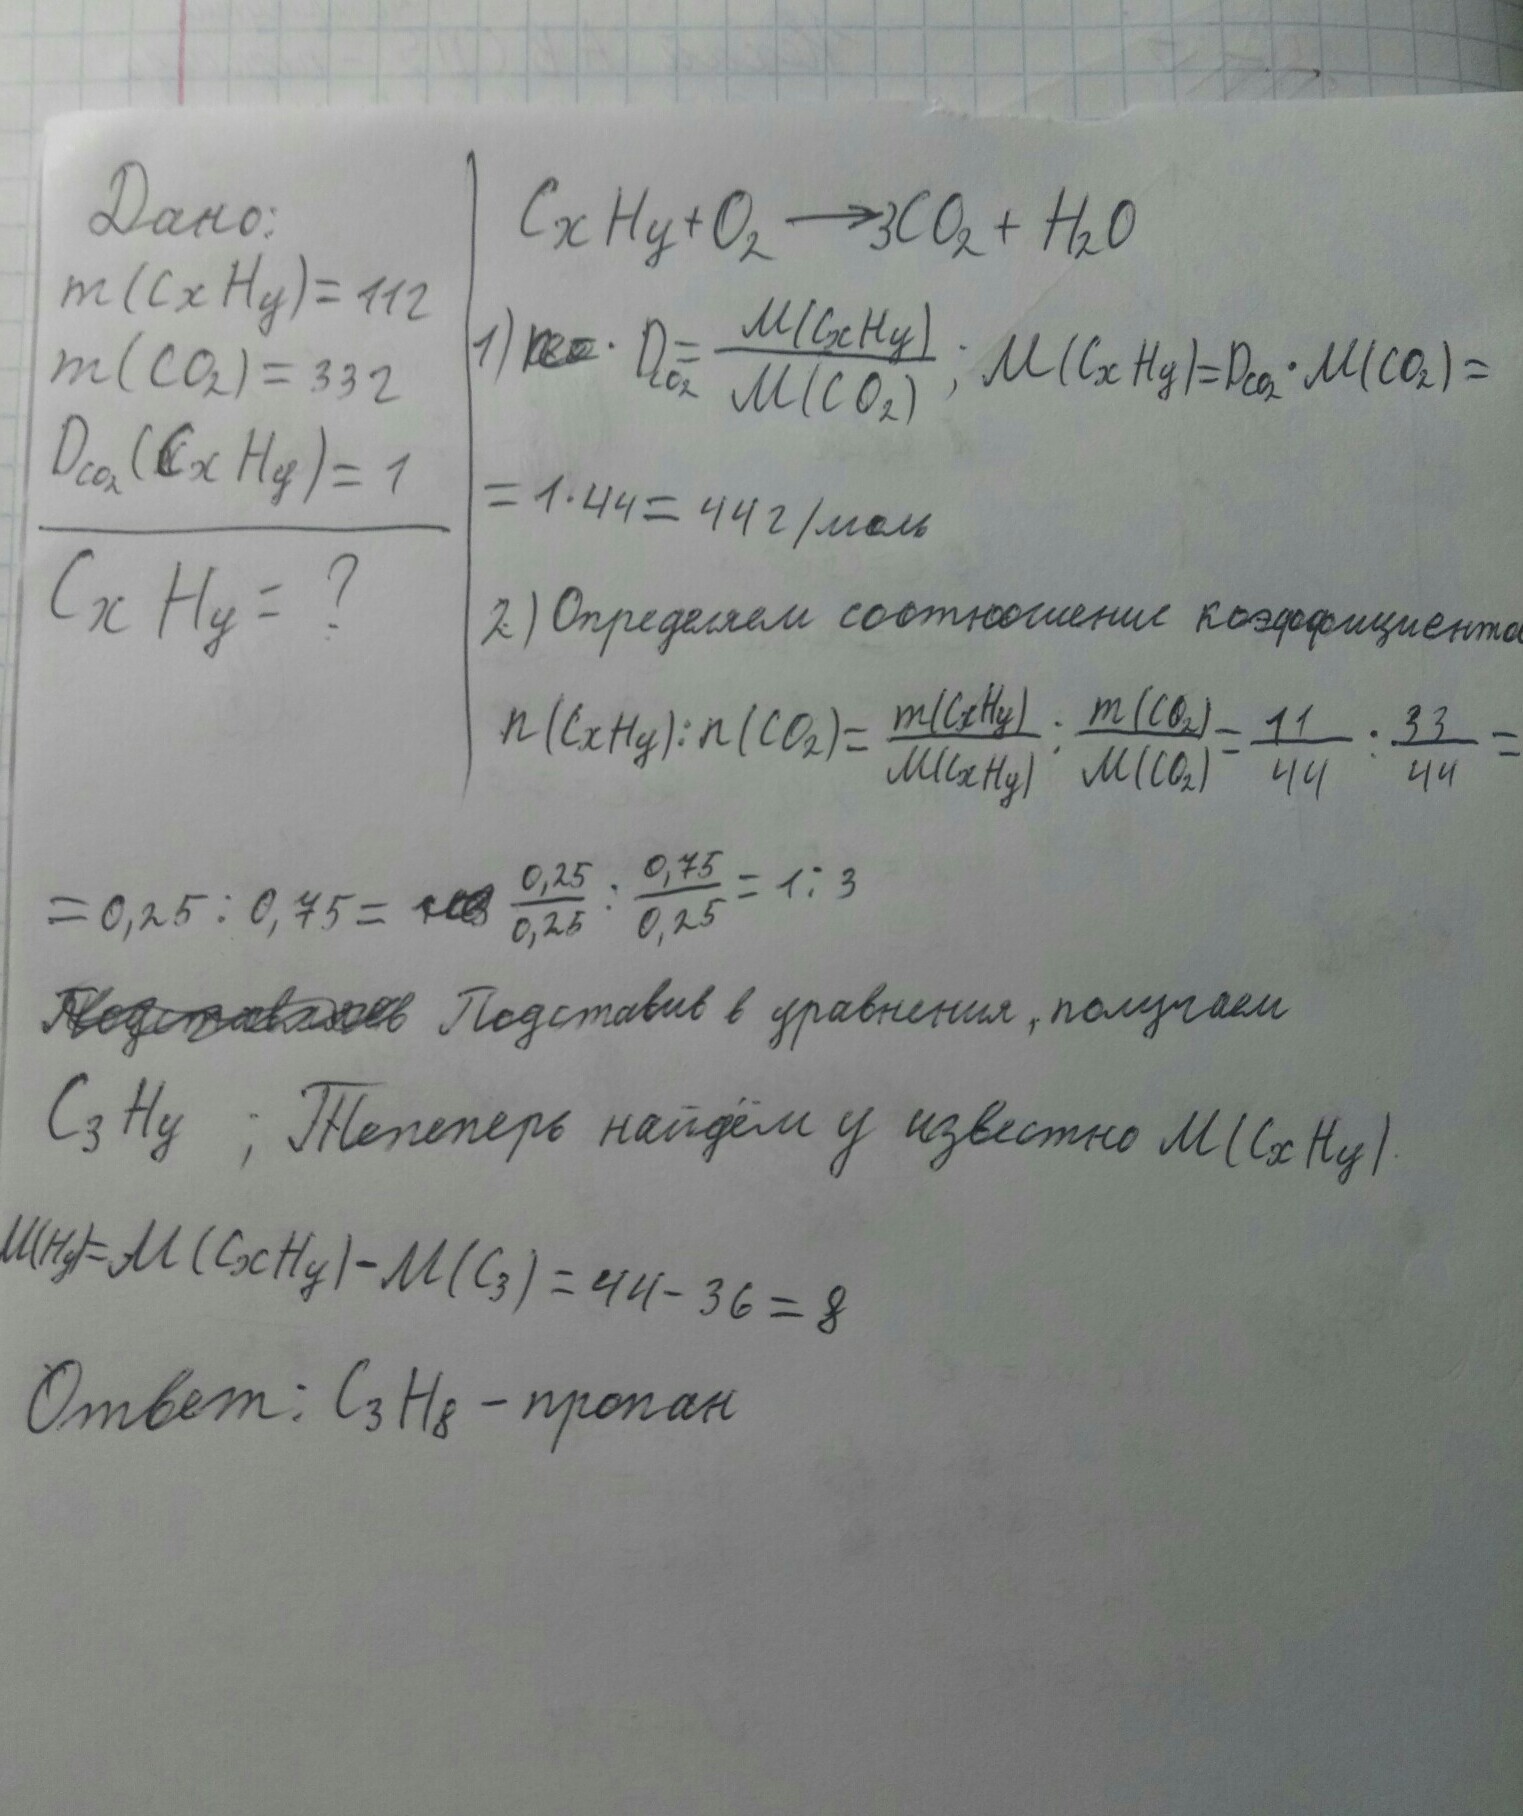 Дано:
m(CxHy)=11г
m(CO2)=33г
DCO2(CxHy)=1
CxHy=?
CxHy+O2→3CO2+H2O
1) DCO2=M(CxHy)/M(CO2); M(CxHy)=DCO2·M(CO2)=
=1·44=44г/моль
2) Определяем соотношение коэффициенто
n(CxHy):n(CO2)=m(CxHy)/M(CxHy):m(CO2)/M(CO2)=11/44:33/44=
=0,25:0,75= 0,25/0,25:0,75/0,25=1:3
Подставив в уравнения, получаем
C3Hy ; Тепеперь найдём y известно M(CxHy).
M(Hy)=M(CxHy)-M(C3)=44-36=8
Ответ: C3H8-пропан